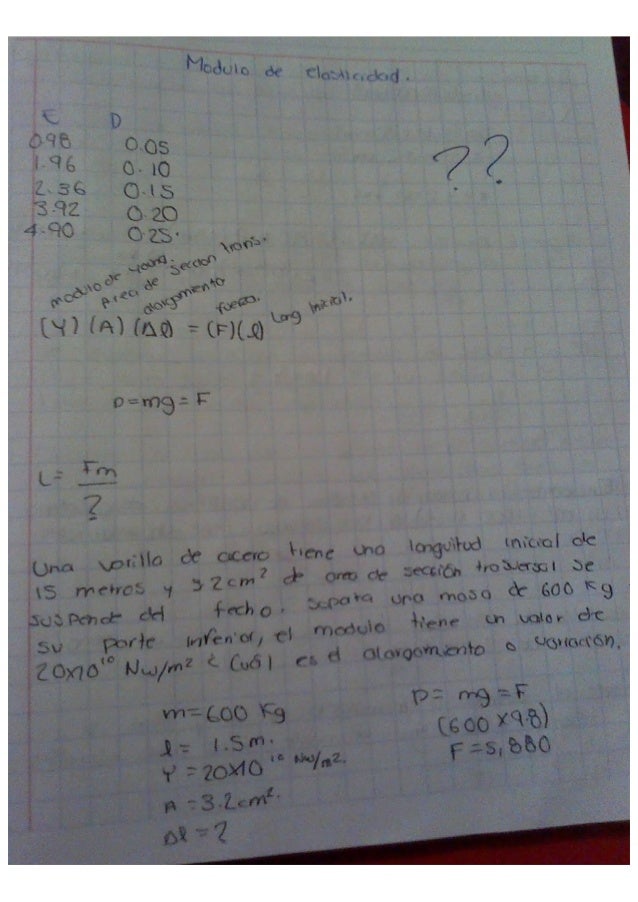 Modulo de elasticidad.
E D
0.98 0.05
1.96 0.10
2.36 0.15
3.92 0.20
4.90 0.25.
??
modulo de young.
Area de seccion trans.
alargamiento
fuerza.
Long Inicial.
(Y) (A) (Δl) = (F)(l)
P=mg=F
L= Fm
?
Una varilla de acero tiene una longuitud inicial de
15 metros y 3.2cm² de area de sección trasversal se
suspende del techo. sopata una masa de 600 Kg
su parte inferior, el modulo tiene un valor de
20x10¹⁰ Nw/m² ¿ Cuál es el alargamiento o variación.
m=600 Kg
l= 1.5m.
Y=20x10¹⁰ Nw/m².
A=3.2cm².
Δl=?
P= mg=F
(600 x9.8)
F=5,880